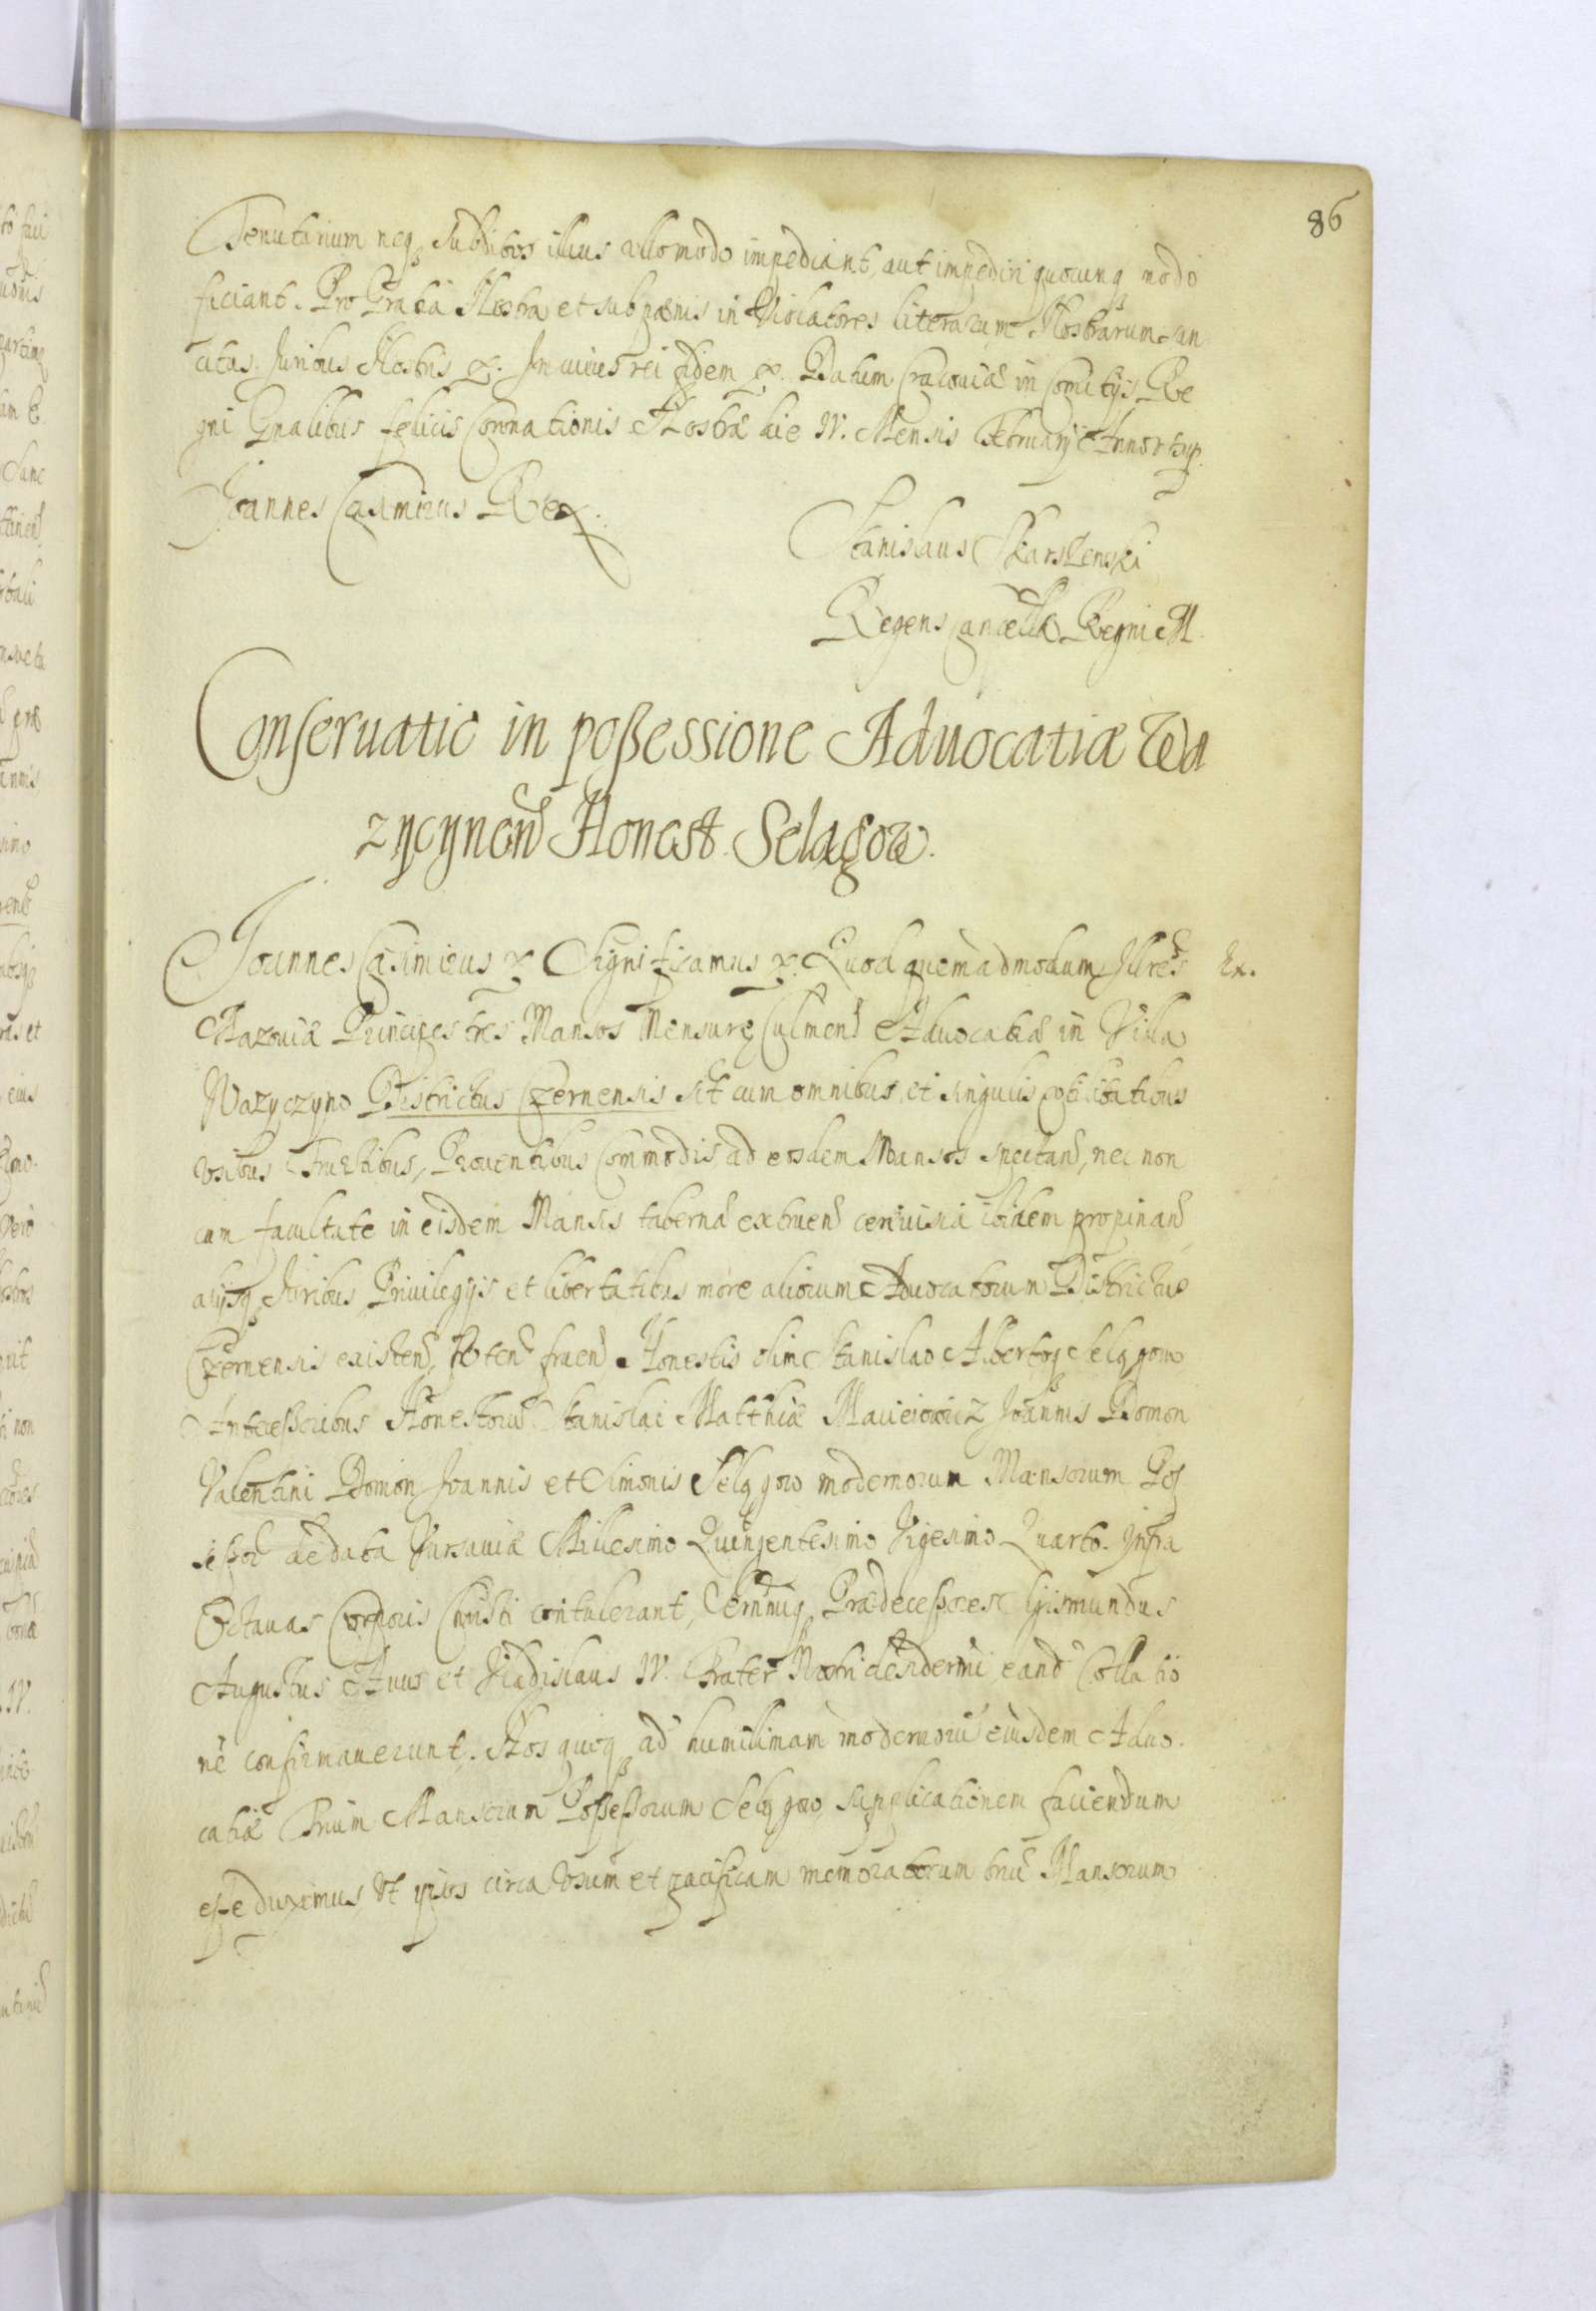 86
Tenutarium neq₃ Subditos illius ullo modo impediant, aut impediri quocunq₃ modo
ficiant. Pro Gratia Nostra et sub pœnis in Violatores literarum Nostrarum san
citas. Juribus Nostris &. In cuius rei fidem &. Datum Cracoviæ in Comitijs Re
gni Gnalibus felicis Coronationis Nostræ die IV. Mensis February Anno
Joannes Casimirus Rex.
Stanislaus Skarszewski
Regens Cancell Regni M.
Conseruatio in poßessione Aduocatiæ Wa
zycynen Honest. Selagow.
Joannes Casimirus & Significamus & Quod quemadmodum Illres Ex.
Mazouiæ Principes tres Mansos Mensuræ Culmen Aduocatiæ in Villa
Wazyczyno Districtus Czernensis sit cum omnibus et singulis vtilitatibus
vsibus Fructibus, Prouentibus Commodis ad eosdem Mansos spectan, nec non
cum facultate in eisdem Mansis taberna extruen ceruisia ibidem propinan
alijsq₃ Juribus Priuilegijs et libertatibus more aliorum Aduocatorum Districtus
Czernensis existen, ten fruen Honestis olim Stanislao Albertoq₃ Selągow
Antecessoribus Honestoru Stanislai Matthiæ Macieiowicz Joannis Domon
Valentini Domon Joannis et Simonis Selągow modernorum Mansorum Pos
seßor de data Varsauiæ Millesimo Quingentesimo Vigesimo Quarto. Infra
Octauas Corporis Christi contulerant, Sernmiq₃ Prædeceßores Sigismundus
Augustus Auus et Vladislaus IV. Frater Nostri desidermi eand Collatio
nē confirmauerunt. Nos quoq₃ ad humillimam modernoru eiusdem Aduo
catiæ Trium Mansorum Poßeßorum Selągow, supplicationem faciendum
eße duximus, Vt ipsos circa Vsum et pacificam memoratorum triu Mansorum